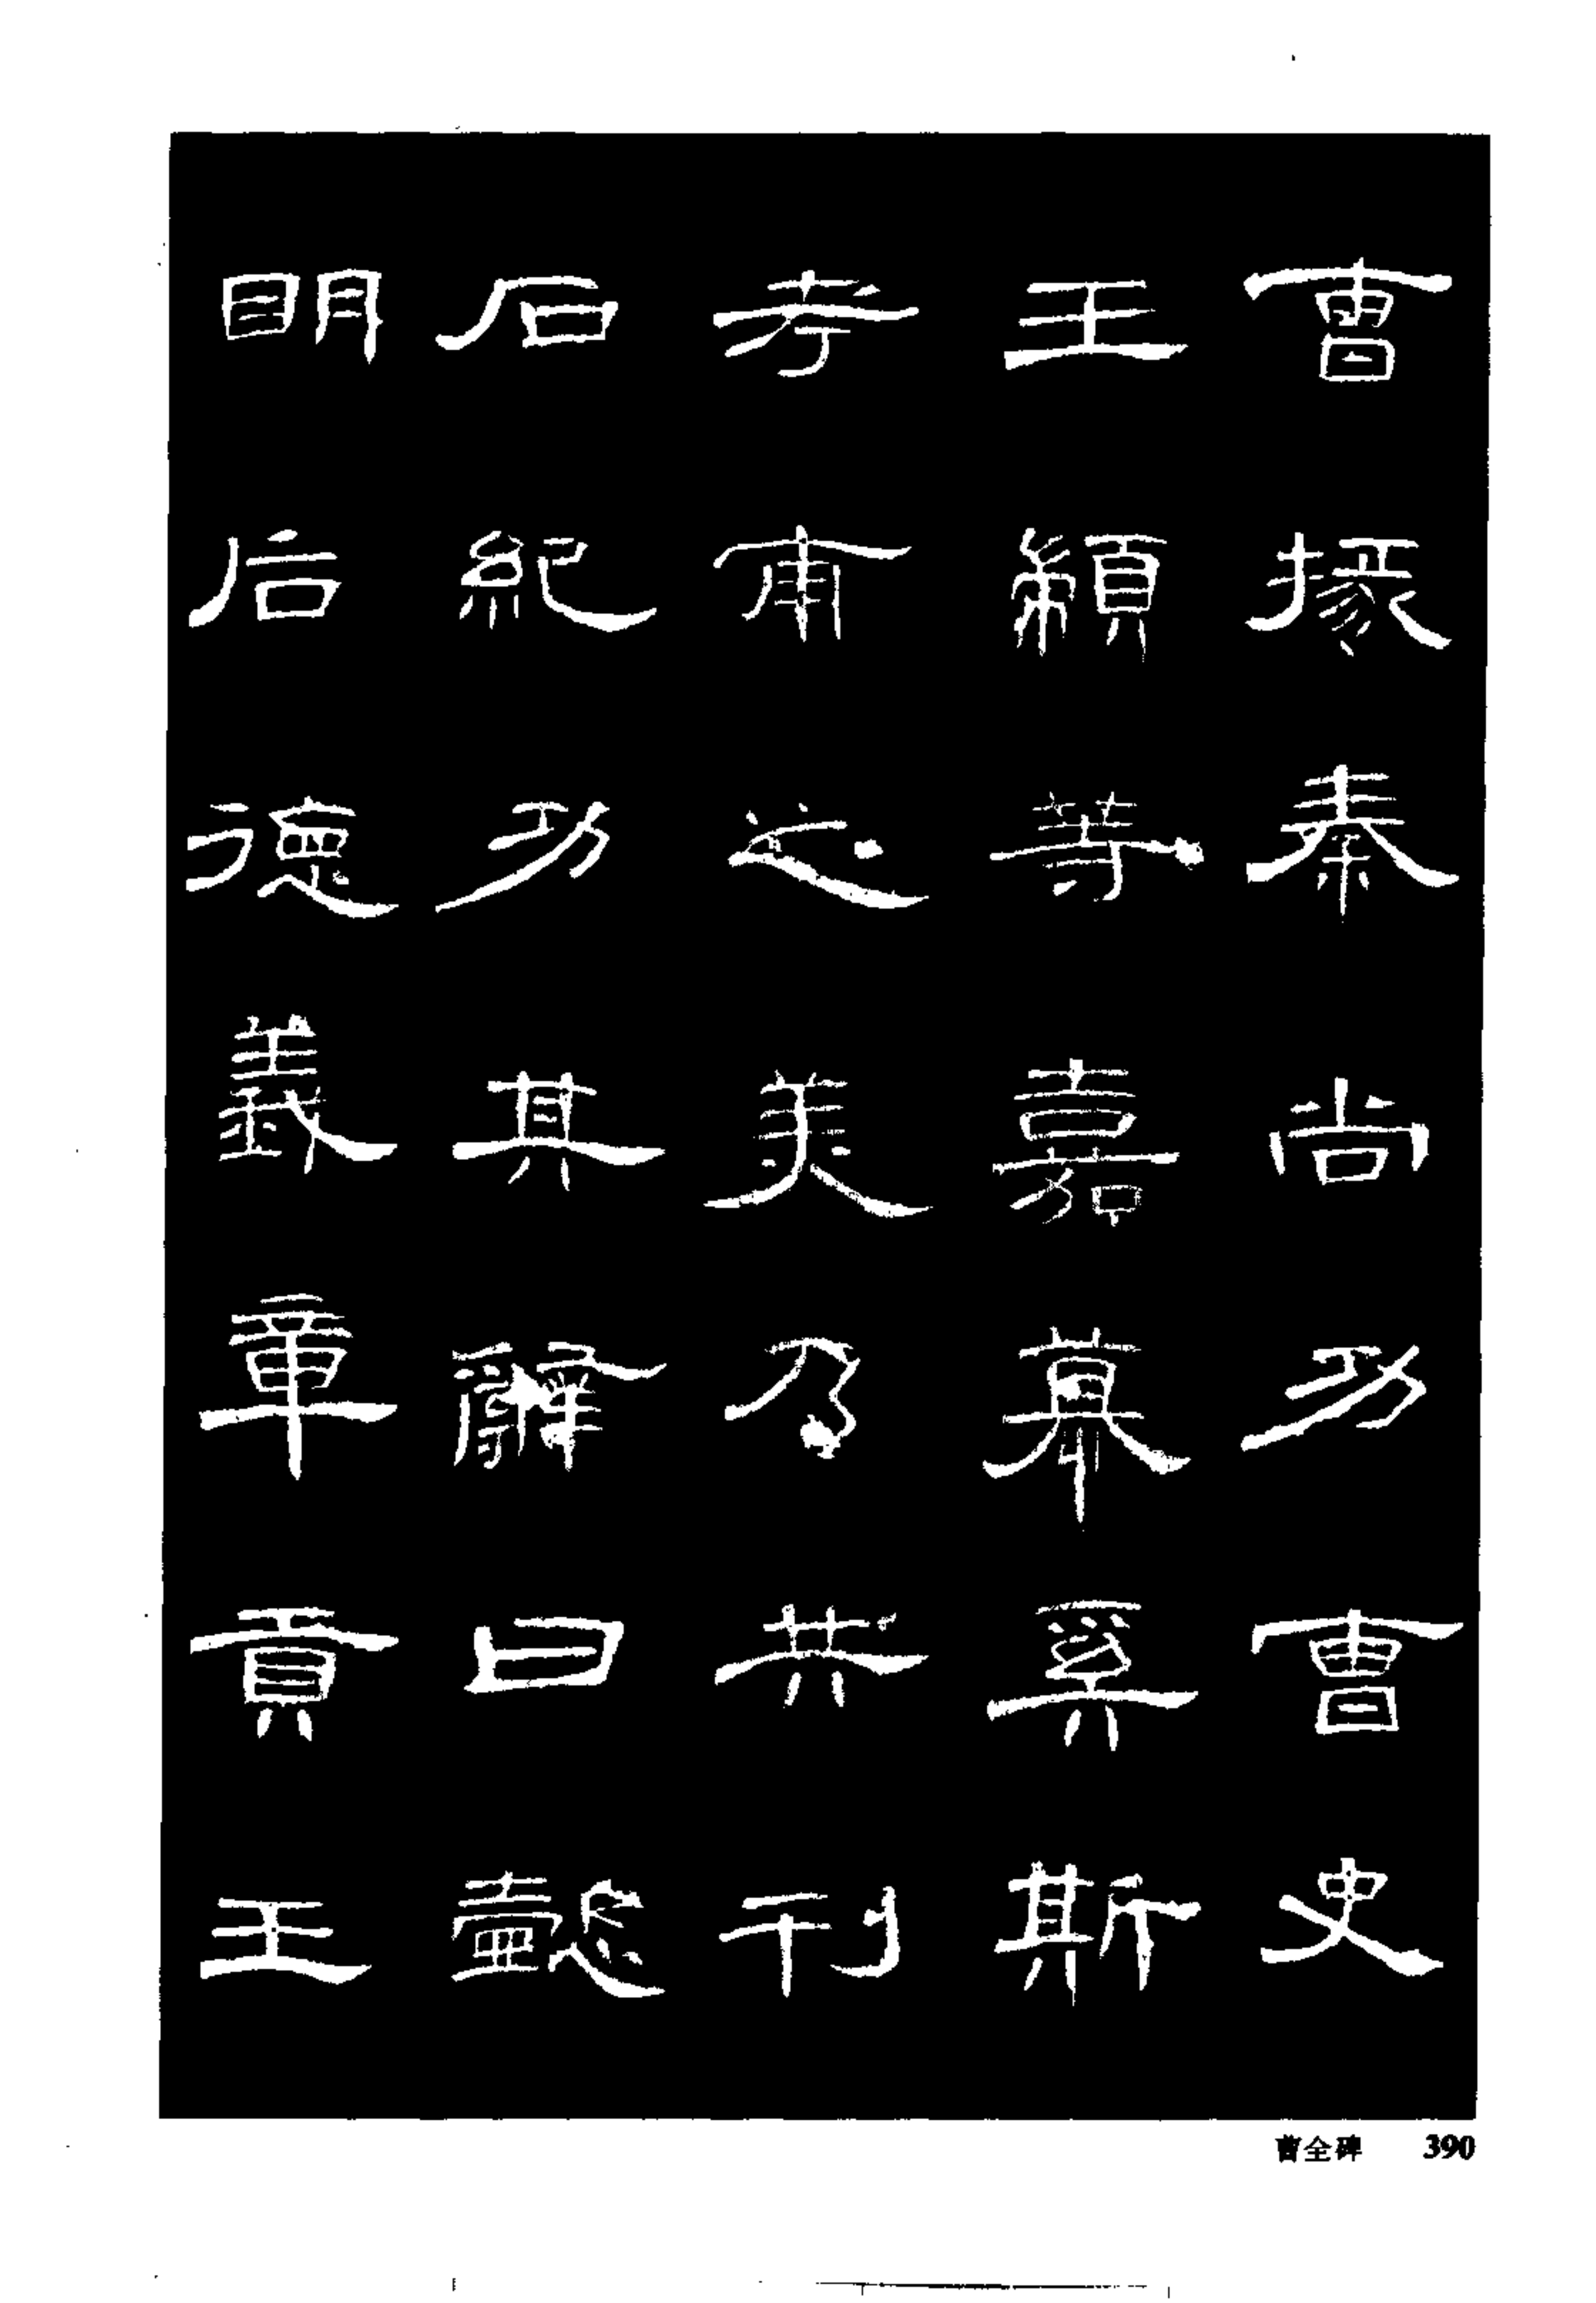 曹掾秦尚功曹史
王顓等嘉慕奚斯
考甫之美乃共刊
石紀功其辭曰懿
明后德義章貢王
曹全碑 390